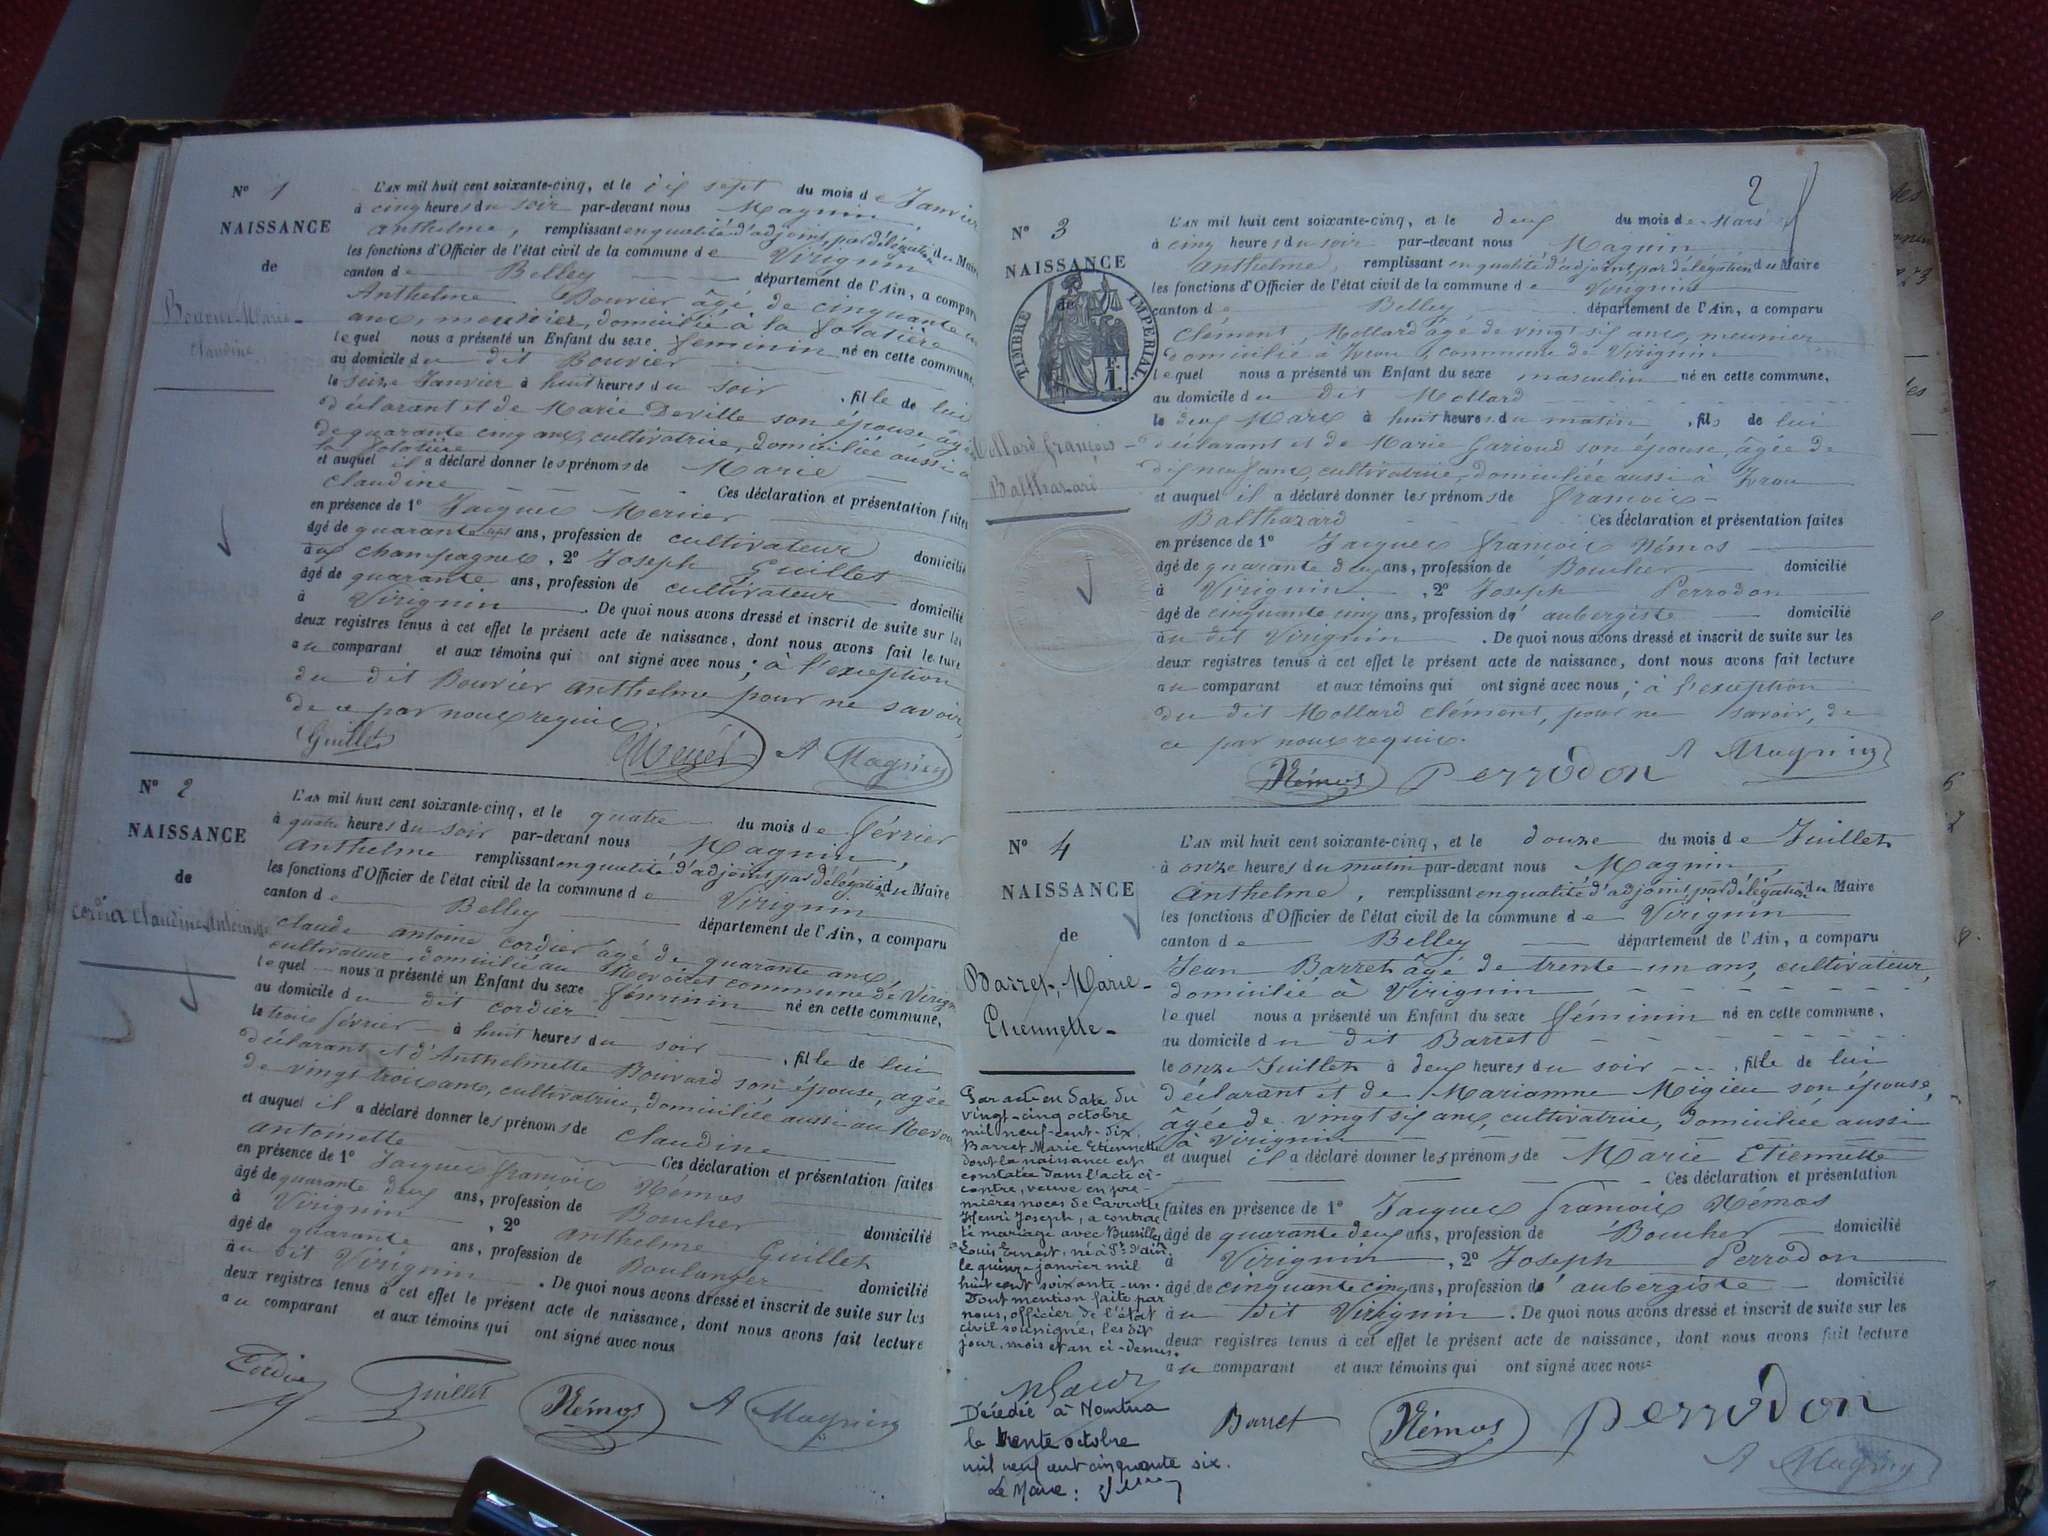 N° 1
NAISSANCE
de
Bouvier Marie
Claudine
L'AN mil huit cent soixante-cinq, et le dix sept du mois de Janvier
à cinq heures du soir par-devant nous Magnin
Anthelme, remplissant en qualité d'adjoint par délégation du Maire
les fonctions d'Officier de l'état civil de la commune de Virignin
canton de Belley département de l'Ain, a comparu
Anthelme Bouvier âgé de cinquante
ans, meunier, domicilié à la
lequel nous a présenté un Enfant du sexe féminin né en cette commune,
au domicile du dit Bouvier
le seize Janvier à huit heures du soir, fille de lui
déclarant et de Marie Deville son épouse âgée
de quarante cinq ans, cultivatrice, domiciliée aussi à
la
et auquel il a déclaré donner les prénoms de Marie
Claudine Ces déclaration et présentation faites
en présence de 1° Jacques Mercier
âgé de quarante sept ans, profession de cultivateur domicilié
aux champagnes, 2° Joseph Guillet
âgé de quarante ans, profession de cultivateur domicilié
à Virignin. De quoi nous avons dressé et inscrit de suite sur les
deux registres tenus à cet effet le présent acte de naissance, dont nous avons fait lecture
au comparant et aux témoins qui ont signé avec nous; à l'exception
du dit Bouvier Anthelme pour ne savoir,
de ce par nous requis
Guillet A Magnin
N° 2
NAISSANCE
de
Cordier Claudine Antoinette
L'AN mil huit cent soixante-cinq, et le quatre du mois de Février
à quatre heures du soir par-devant nous Magnin,
Anthelme remplissant en qualité d'adjoint par délégation du Maire
les fonctions d'Officier de l'état civil de la commune de Virignin
canton de Belley département de l'Ain, a comparu
Claude Antoine Cordier âgé de quarante ans,
cultivateur domicilié au commune de Virignin
lequel nous a présenté un Enfant du sexe féminin né en cette commune,
au domicile du dit Cordier
le trois février à huit heures du soir, fille de lui
déclarant et d'Anthelmette Bouvard son épouse, agée
de vingt trois ans, cultivatrice, domiciliée aussi au
et auquel il a déclaré donner les prénoms de Claudine
Antoinette Ces déclaration et présentation faites
en présence de 1° Jacques François Némos
âgé de quarante deux ans, profession de Boucher domicilié
à Virignin, 2° Anthelme Guillet
âgé de quarante ans, profession de Boulanger domicilié
au dit Virignin. De quoi nous avons dressé et inscrit de suite sur les
deux registres tenus à cet effet le présent acte de naissance, dont nous avons fait lecture
au comparant et aux témoins qui ont signé avec nous
Cordier Guillet Némos A Magnin
2
N° 3
NAISSANCE
de
TIMBRE IMPERIAL
Mollard François
Balthazard
L'AN mil huit cent soixante-cinq, et le deux du mois de Mars
à cinq heures du soir par-devant nous Magnin
Anthelme, remplissant en qualité d'adjoint par délégation du Maire
les fonctions d'Officier de l'état civil de la commune de Virignin
canton de Belley département de l'Ain, a comparu
Clément Mollard âgé de vingt six ans, meunier
domicilié à commune de Virignin
lequel nous a présenté un Enfant du sexe masculin né en cette commune,
au domicile du dit Mollard
le deux Mars à huit heures du matin, fils de lui
déclarant et de Marie Garioud son épouse, âgée de
dix neuf ans, cultivatrice, domiciliée aussi à
et auquel il a déclaré donner les prénoms de François
Balthazard Ces déclaration et présentation faites
en présence de 1° Jacques François Némos
âgé de quarante deux ans, profession de Boucher domicilié
à Virignin, 2° Joseph Perrodon
âgé de cinquante cinq ans, profession d'aubergiste domicilié
au dit Virignin. De quoi nous avons dressé et inscrit de suite sur les
deux registres tenus à cet effet le présent acte de naissance, dont nous avons fait lecture
au comparant et aux témoins qui ont signé avec nous; à l'exception
du dit Mollard Clément, pour ne savoir, de
ce par nous requis.
Némos Perrodon A Magnin
N° 4
NAISSANCE
de
Barret, Marie-
Etiennette-
L'AN mil huit cent soixante-cinq, et le douze du mois de Juillet
à onze heures du matin par-devant nous Magnin,
Anthelme, remplissant en qualité d'adjoint par délégation du Maire
les fonctions d'Officier de l'état civil de la commune de Virignin
canton de Belley département de l'Ain, a comparu
Jean Barret âgé de trente-un ans, cultivateur,
domicilié à Virignin
lequel nous a présenté un Enfant du sexe féminin né en cette commune,
au domicile du dit Barret
le onze Juillet à deux heures du soir, fille de lui
déclarant et de Marianne Migieu son épouse,
âgée de vingt six ans, cultivatrice, domiciliée aussi
à Virignin
et auquel il a déclaré donner les prénoms de Marie Etiennette
Ces déclaration et présentation
faites en présence de 1° Jacques François Némos
âgé de quarante deux ans, profession de Boucher domicilié
à Virignin, 2° Joseph Perrodon
âgé de cinquante cinq ans, profession d'aubergiste domicilié
au dit Virignin. De quoi nous avons dressé et inscrit de suite sur les
deux registres tenus à cet effet le présent acte de naissance, dont nous avons fait lecture
au comparant et aux témoins qui ont signé avec nous
Barret Némos Perrodon
A Magnin
Par acte en date du
vingt-cinq octobre
mil neuf-cent-dix,
Barret Marie Etiennette
dont la naissance est
constatée dans l'acte ci-
contre, veuve en pre-
mières noces de Carrotte
Henri Joseph, a contrac
té mariage avec Bussilley
Louis Ernest, né à Pt d'ain
le quinze janvier mil
huit cent soixante-un.
Dont mention faite par
nous, officier de l'état
civil soussigné, les dit
jour, mois et an ci-dessus.
Décédée à Nantua
le trente octobre
mil neuf cent cinquante six.
Le Maire: